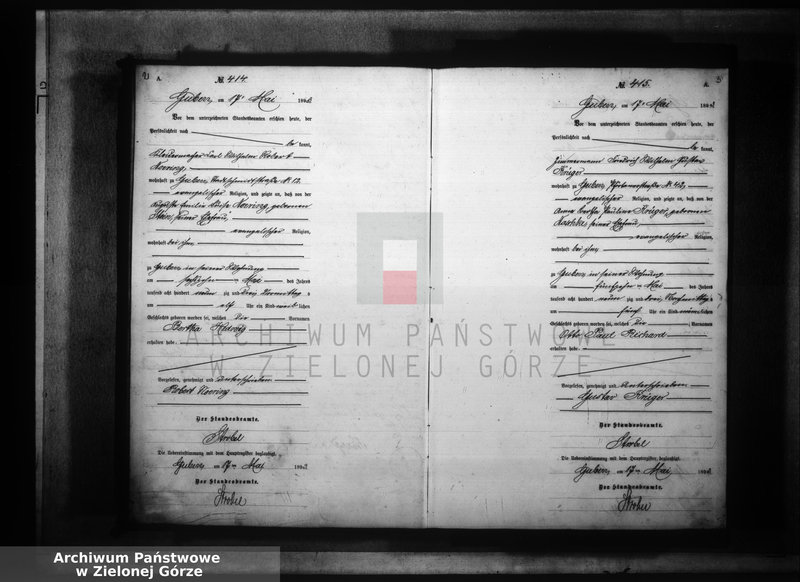 A.
№ 414.
Guben, am 17. Mai 189
Vor dem unterzeichneten Standesbeamten erschien heute, der
Persönlichkeit nach
be kannt,
Carl Wilhelm Robert
Noering,
wohnhaft zu Guben, № 12
evangelischer Religion, und zeigte an, daß von der
Auguste Emilie Noering, geborenen
seiner Ehefrau,
evangelischer Religion,
wohnhaft bei ihm
zu Guben in seiner Wohnung
am Mai des Jahres
tausend acht hundert neun zig und drei Vormittags
um elf Uhr ein Kind weiblichen
Geschlechts geboren worden sei, welches die Vornamen
Bertha Hedwig
erhalten habe.
Vorgelesen, genehmigt und unterschrieben
Robert Noering
Der Standesbeamte.
Strobel
Die Uebereinstimmung mit dem Hauptregister beglaubigt.
Guben, am 17ten Mai 189
Der Standesbeamte.
Strobel
№ 415.
A.
Guben, am 17. Mai 189
Vor dem unterzeichneten Standesbeamten erschien heute, der
Persönlichkeit nach
be kannt,
Zimmermann Friedrich Wilhelm Gustav
Krüger
wohnhaft zu Guben, № 42,
evangelischer Religion, und zeigte an, daß von der
Anna Bertha Pauline Krüger, geborenen
seiner Ehefrau,
evangelischer Religion,
wohnhaft bei ihm
zu Guben in seiner Wohnung
am fünfzehn ten Mai des Jahres
tausend acht hundert neun zig und drei Nachmittags
um fünf Uhr ein Kind männlichen
Geschlechts geboren worden sei, welches die Vornamen
Otto Paul Richard
erhalten habe.
Vorgelesen, genehmigt und unterschrieben
Gustav Krüger
Der Standesbeamte.
Strobel
Die Uebereinstimmung mit dem Hauptregister beglaubigt.
Guben, am 17ten Mai 189
Der Standesbeamte.
Strobel
ARCHIWUM PAŃSTWOWE
W ZIELONEJ GÓRZE
Archiwum Państwowe
w Zielonej Górze